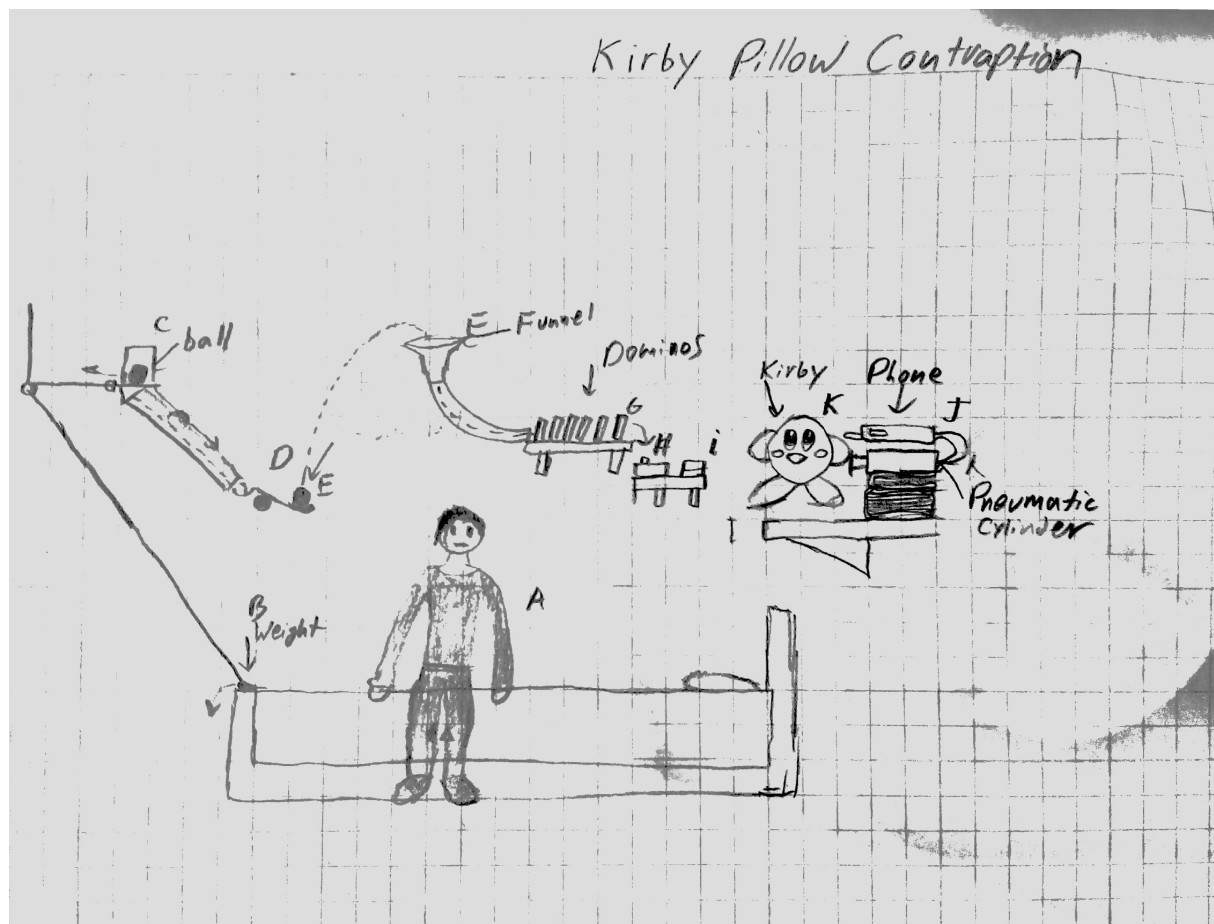 Kirby Pillow Contraption
C
ball
E Funnel
Dominos
Kirby
K
Phone
J
G
H
i
D
E
Pneumatic
Cylinder
A
B
Weight